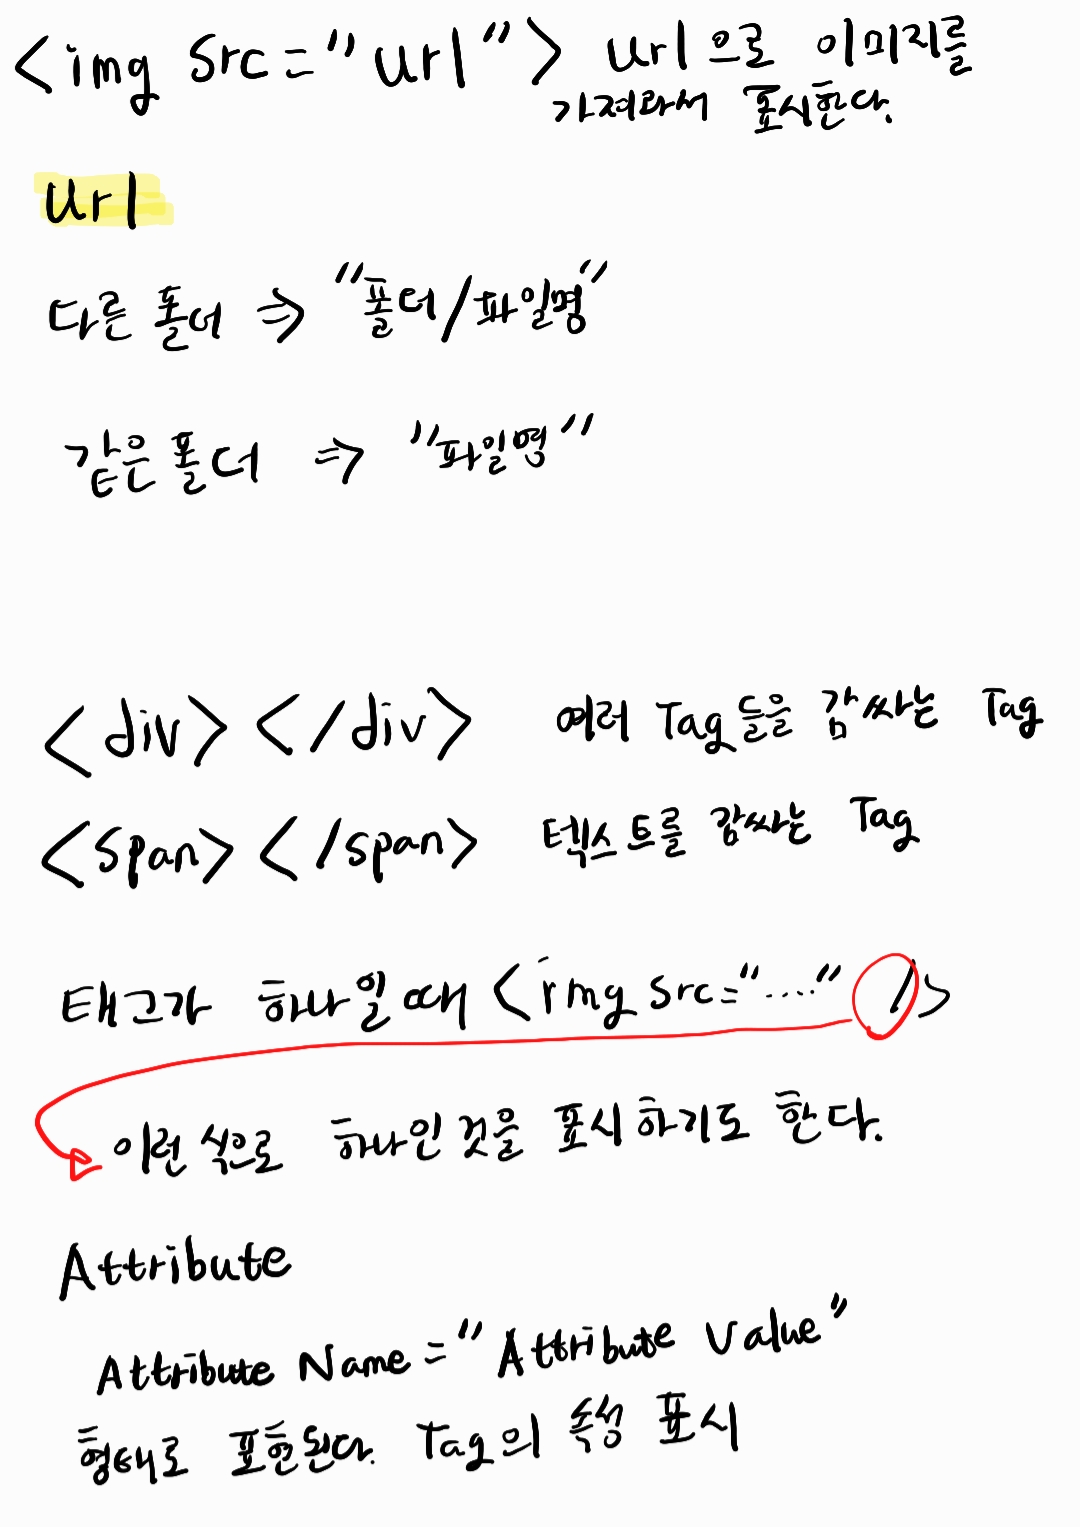 <img src="url"> url으로 이미지를
가져와서 표시한다.
url
다른 폴더 ⇒ "폴더/파일명"
같은 폴더 ⇒ "파일명"
<div></div> 여러 Tag들을 감싸는 Tag
<span></span> 텍스트를 감싸는 Tag
태그가 하나일 때 <img src="....." />
이런 식으로 하나인 것을 표시하기도 한다.
Attribute
Attribute Name="Attribute Value"
형태로 표현된다. Tag의 속성 표시